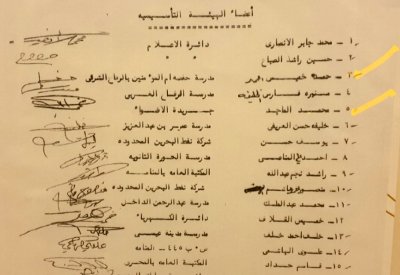 أعضاء الهيئة التأسيسية
١ - محمد جابر الانصارى دائرة الاعلام
٢ - حسين راشد الصباغ
٣ - حصة خميس مدرسة حفصه ام المؤمنين بالرفاع الشرقى
٤ - منوره فارس مدرسة الرفاع الغربى
٥ - محمد الماجد جريدة الاضواء
٦ - خليفه حسن العريفى مدرسة عمر بن عبدالعزيز
٧ - يوسف حسن شركة نفط البحرين المحدوده
٨ - احمد المناعى مدرسة الحورة الثانويه
٩ - راشد نجم عبدالله المكتبة العامه بالمنامه
١٠ - شركة نفط البحرين المحدوده
١١ - محمد عبدالملك مدرسة عبدالرحمن الداخل
١٢ - خميس القلاف دائرة الكهرباء
١٣ - خلف احمد خلف مدرسة مدينه عيسى
١٤ - علوى الهاشمى ص ٠ ب ٤٤٥٠ المنامه
١٥ - قاسم حداد المكتبة العامه بالمحرق